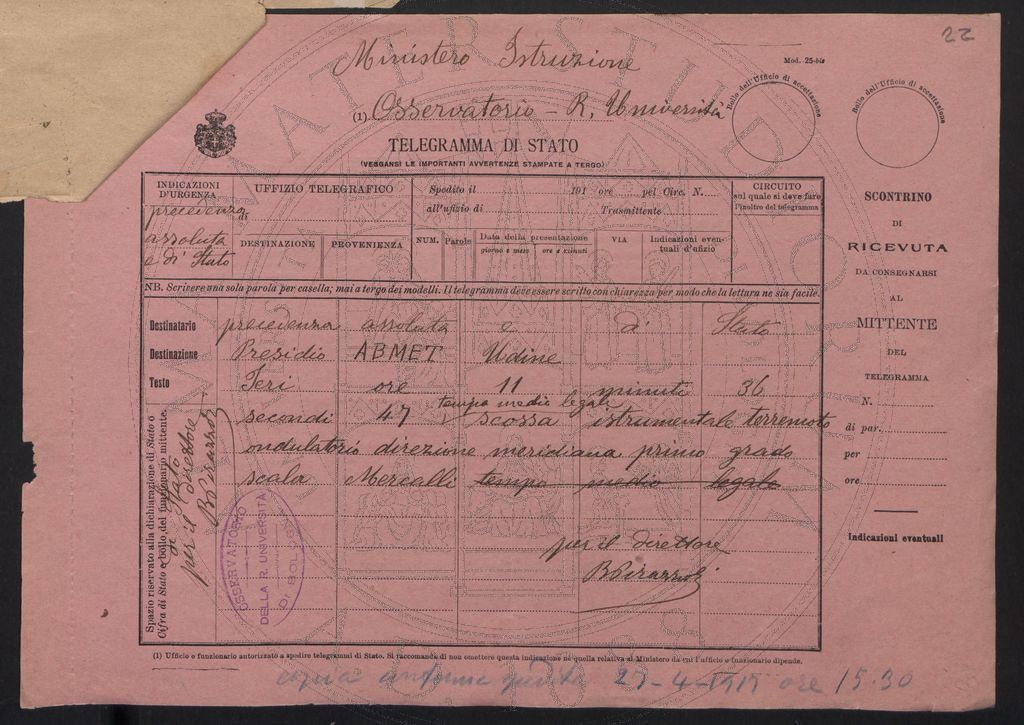 22
Ministero Istruzione
Mod. 25-bis
(1) Osservatorio - R. Università
Bollo dell'Ufficio di accettazione
Bollo dell'Ufficio di accettazione
TELEGRAMMA DI STATO
(VEGGANSI LE IMPORTANTI AVVERTENZE STAMPATE A TERGO)
INDICAZIONI D'URGENZA
precedenza
assoluta
e di Stato
UFFIZIO TELEGRAFICO
di
DESTINAZIONE PROVENIENZA
Spedito il 191 ore pel Circ. N.
all'ufizio di Trasmittente
NUM. Parole Data della presentazione VIA Indicazioni even-
giorno e mese ore e minuti tuali d'ufizio
CIRCUITO
sul quale si deve fare
l'inoltro del telegramma
NB. Scrivere una sola parola per casella; mai a tergo dei modelli. Il telegramma deve essere scritto con chiarezza per modo che la lettura ne sia facile.
Destinatario precedenza assoluta e di Stato
Destinazione Presidio ABMET Udine
Testo Ieri ore 11 minuti 36
tempo medio legale
secondi 47 scossa istrumentale terremoto
ondulatorio direzione meridiana primo grado
scala Mercalli tempo medio legale
per il direttore
B Pirazzoli
Spazio riservato alla dichiarazione di Stato o
Cifra di Stato e bollo del funzionario mittente.
di Stato
per il direttore
B Pirazzoli
OSSERVATORIO
DELLA R. UNIVERSITÀ
DI BOLOGNA
SCONTRINO
DI
RICEVUTA
DA CONSEGNARSI
AL
MITTENTE
DEL
TELEGRAMMA
N.
di par.
per
ore
Indicazioni eventuali
(1) Ufficio o funzionario autorizzato a spedire telegrammi di Stato. Si raccomanda di non omettere questa indicazione nè quella relativa al Ministero da cui l'ufficio o funzionario dipende.
27-4-1917 ore 15.30